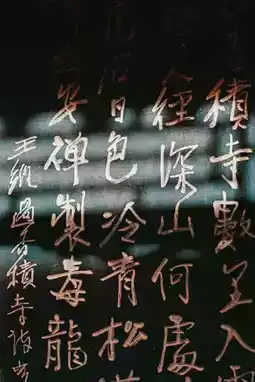 積寺數里入雲
人徑深山何處
石日色冷青松
安禪製毒龍
王維過香積寺詩